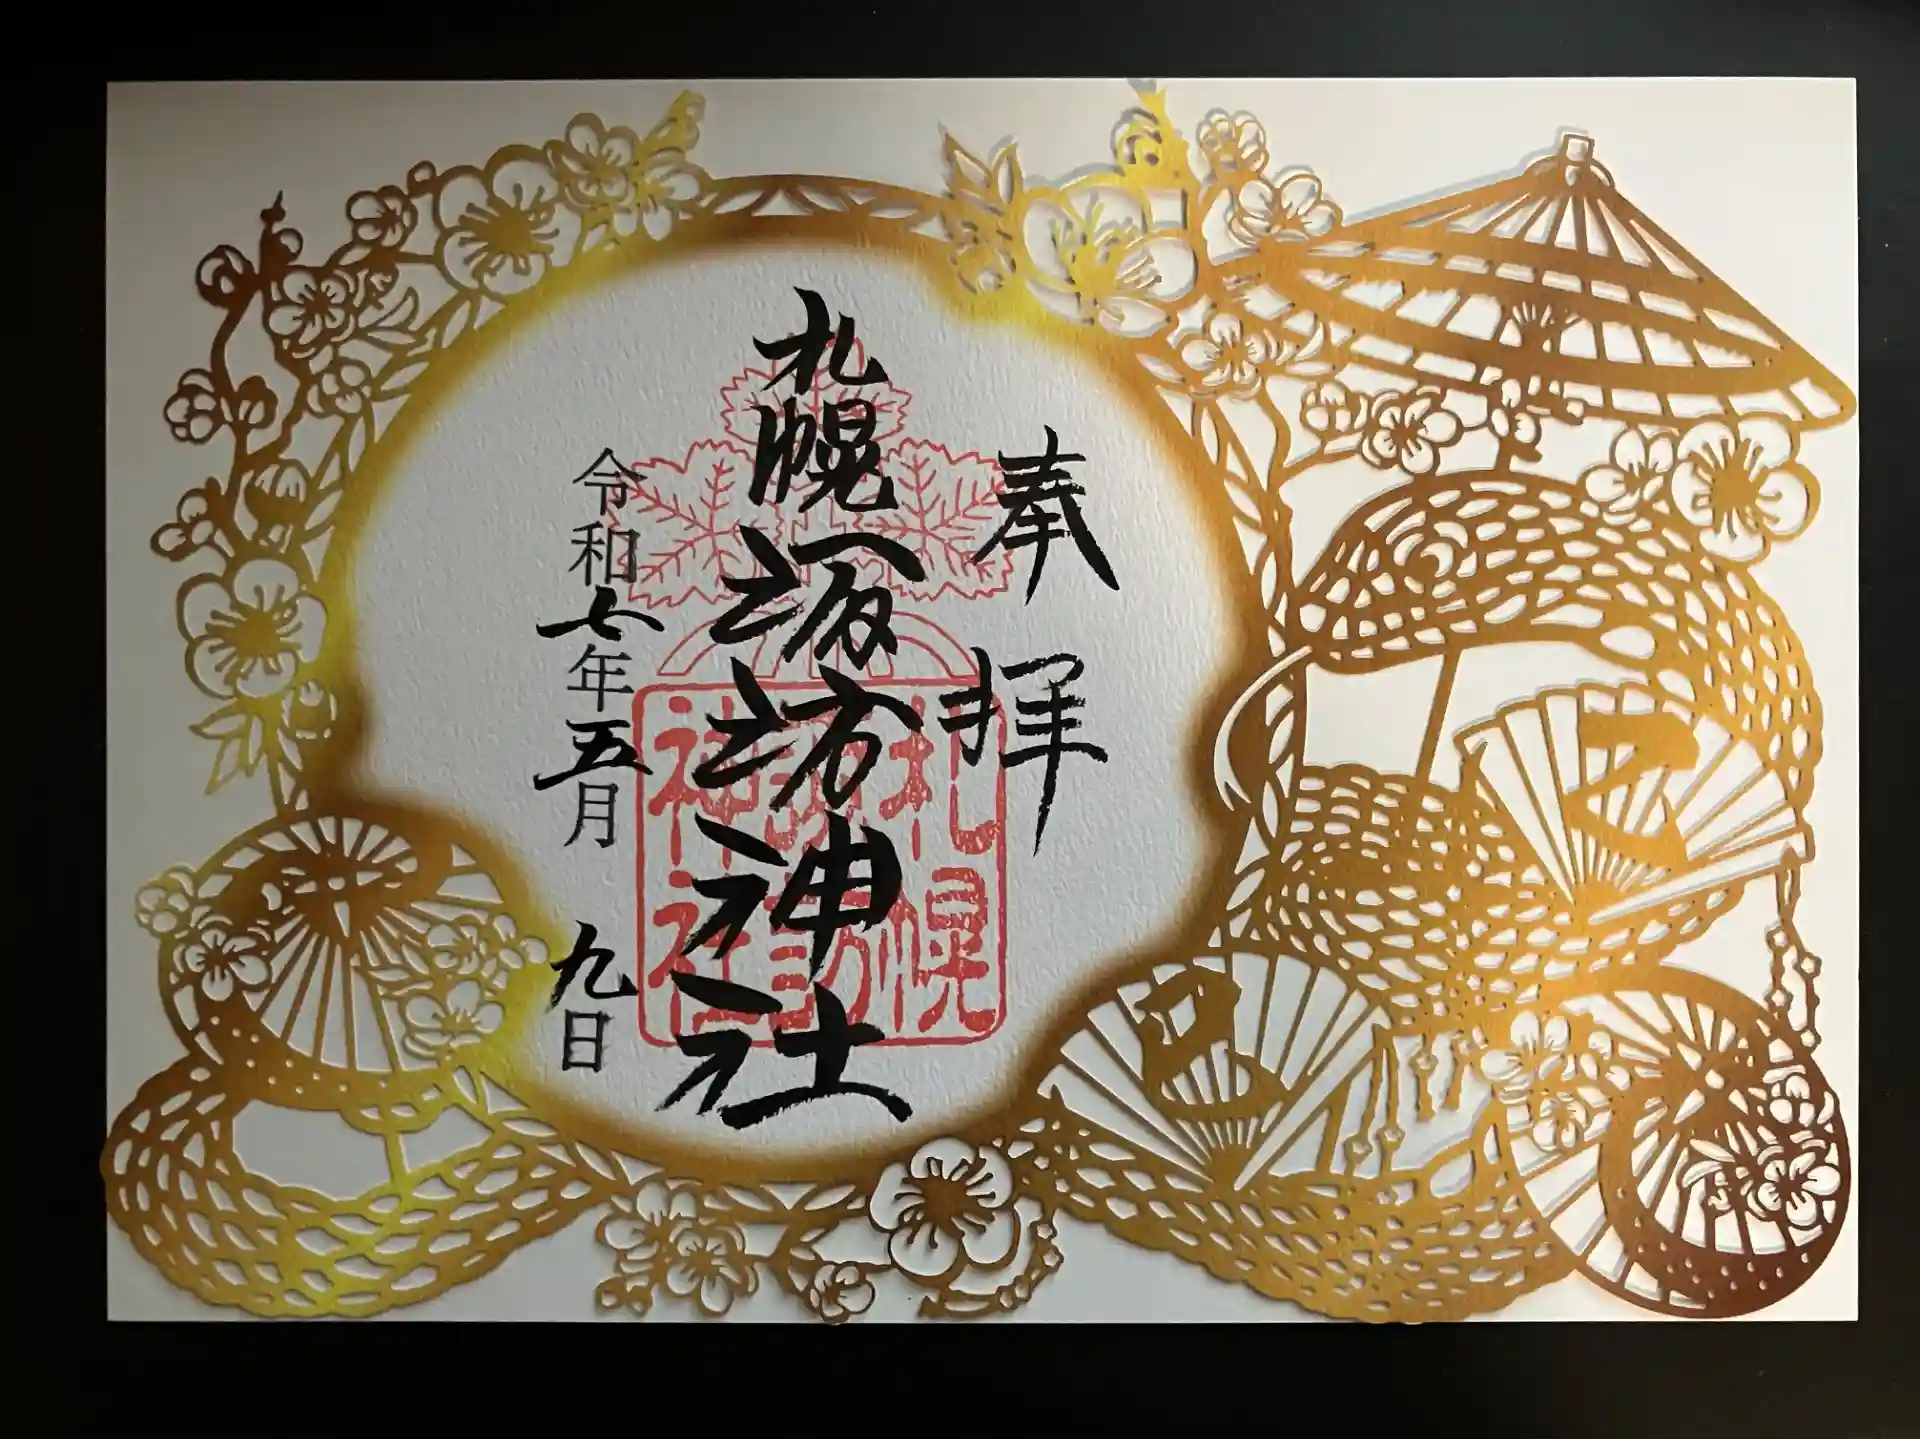 奉拝
札幌諏訪神社
令和七年五月九日
札幌
諏訪
神社
巳